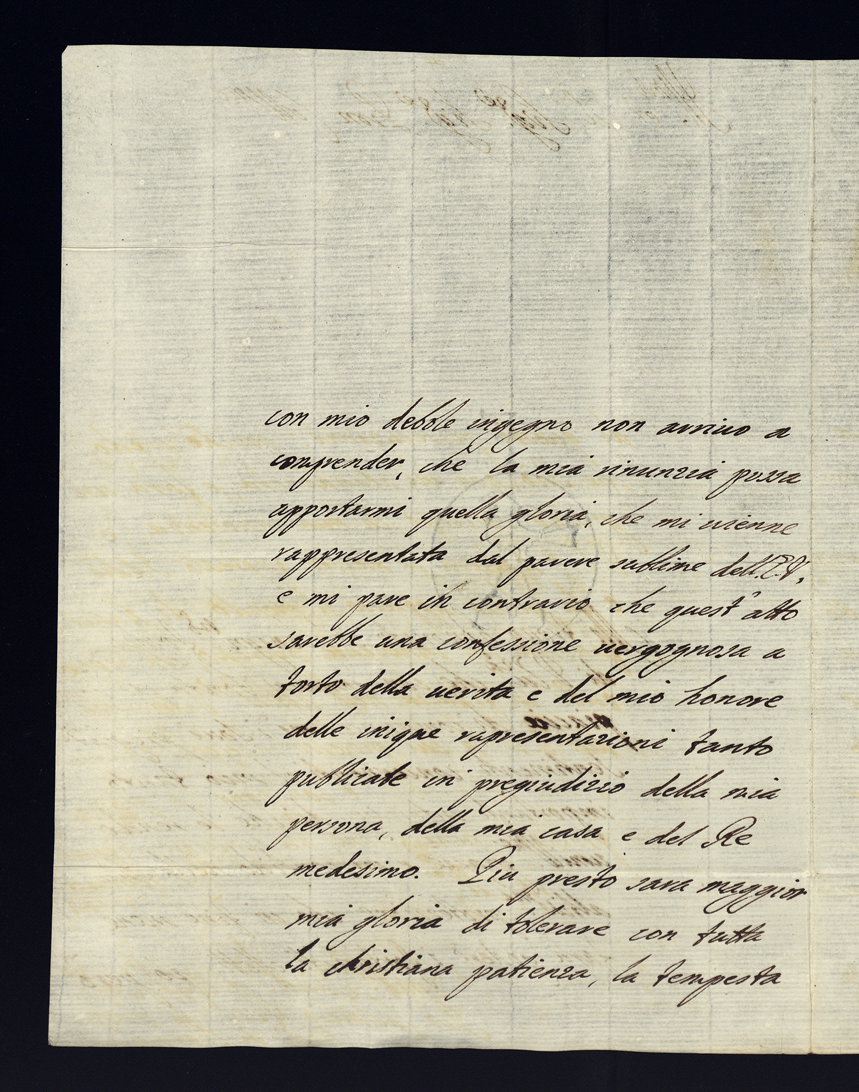 con mio debole ingegno non arrivo a
comprender, che la mia rinunzia possa
apportarmi quella gloria, che mi vienne
rappresentata dal parere sublime dell'E.V.,
e mi pare in contrario che quest' atto
sarebbe una confessione vergognosa a
torto della verita e del mio honore
delle inique rapresentazioni tanto
publicate in pregiudizio della mia
persona, della mia casa e del Re
medesimo. Piu presto sara maggior
mia gloria di tolerare con tutta
la christiana patienza, la tempesta